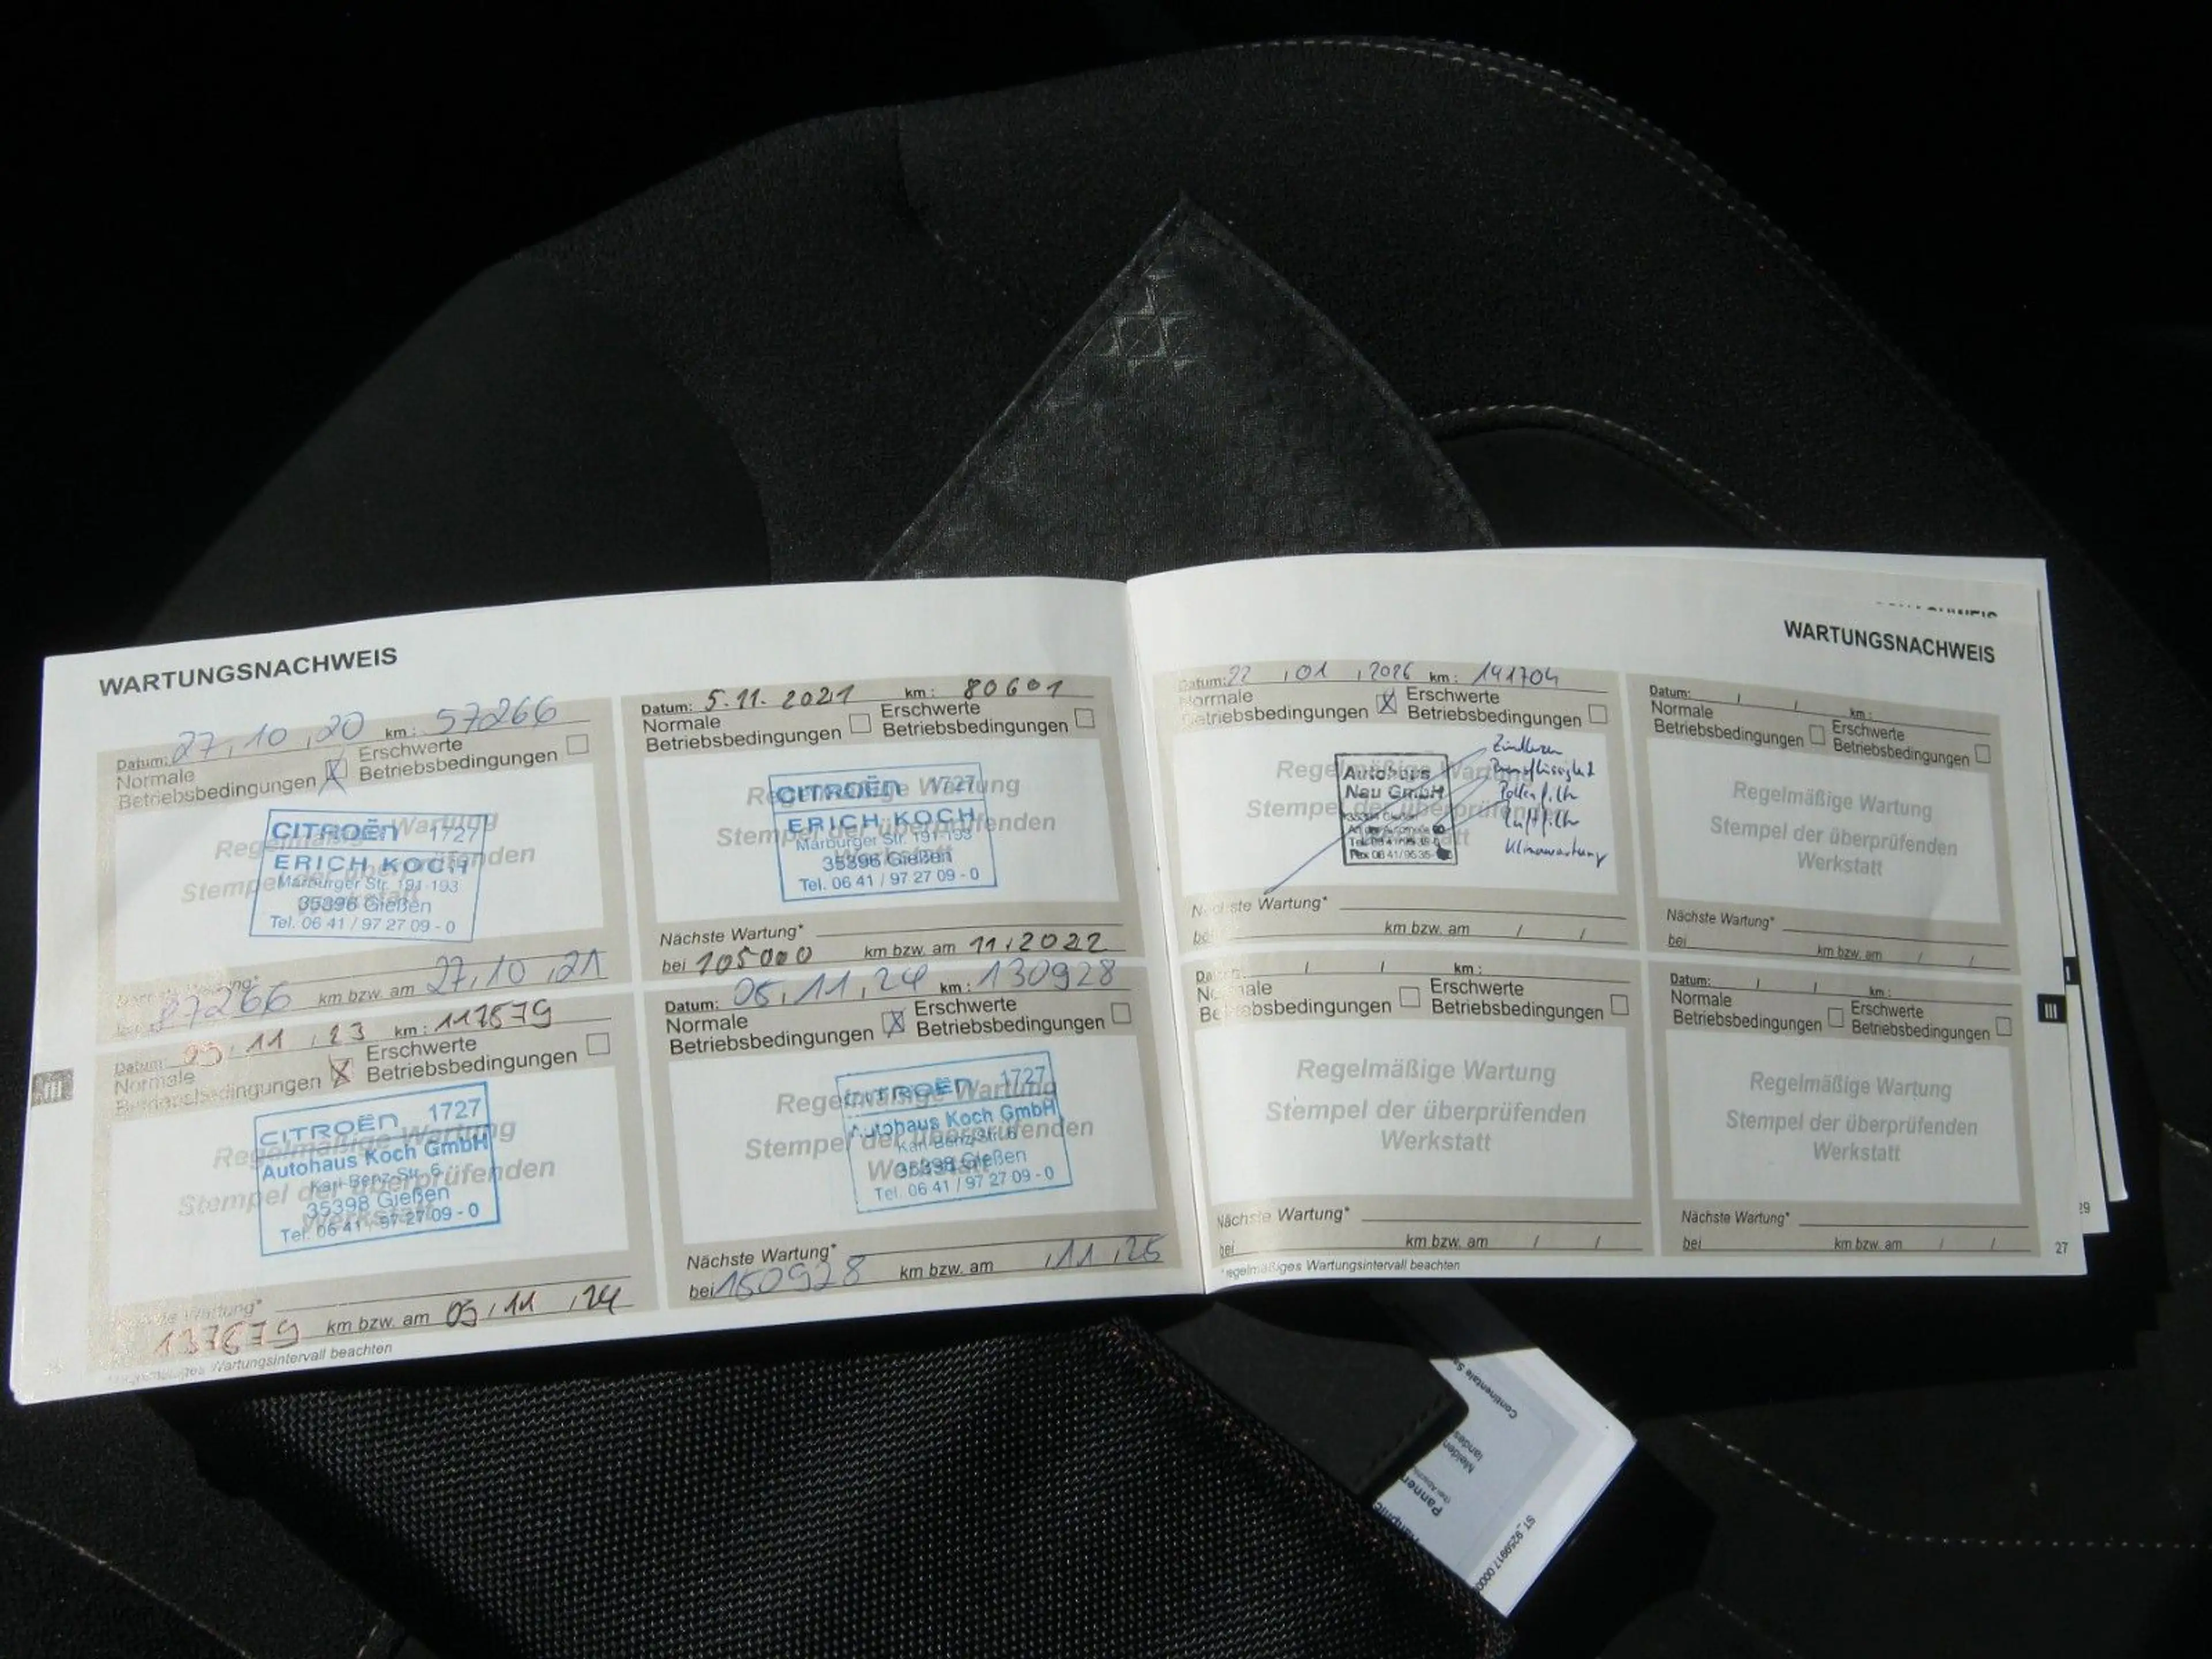 WARTUNGSNACHWEIS
Datum: 27,10,20 km: 57266
Normale
Betriebsbedingungen
Erschwerte
Betriebsbedingungen
Regelmäßige Wartung
Stempel der überprüfenden
Werkstatt
CITROËN 1727
ERICH KOCH
Marburger Str. 191-193
35396 Gießen
Tel. 06 41 / 97 27 09 - 0
87266 km bzw. am 27,10,21
Datum: 5.11.2021 km: 80601
Normale
Betriebsbedingungen
Erschwerte
Betriebsbedingungen
Regelmäßige Wartung
Stempel der überprüfenden
Werkstatt
CITROËN 1727
ERICH KOCH
Marburger Str. 191-193
35396 Gießen
Tel. 06 41 / 97 27 09 - 0
Nächste Wartung*
bei 105000 km bzw. am 11/2022
Datum: 11,23 km: 117879
Normale
Betriebsbedingungen
Erschwerte
Betriebsbedingungen
Regelmäßige Wartung
Stempel der überprüfenden
Werkstatt
CITROËN 1727
Autohaus Koch GmbH
Karl-Benz-Str. 6
35398 Gießen
Tel. 06 41 / 97 27 09 - 0
Wartung*
137879 km bzw. am 11,24
Wartungsintervall beachten
Datum: 05,11,24 km: 130928
Normale
Betriebsbedingungen
Erschwerte
Betriebsbedingungen
Regelmäßige Wartung
Stempel der überprüfenden
Werkstatt
CITROËN 1727
Autohaus Koch GmbH
Karl-Benz-Str. 6
35398 Gießen
Tel. 06 41 / 97 27 09 - 0
Nächste Wartung*
bei 150928 km bzw. am ,11,25
III
WARTUNGSNACHWEIS
Datum: 22,01,2026 km: 141704
Normale
Betriebsbedingungen
Erschwerte
Betriebsbedingungen
Regelmäßige Wartung
Stempel der überprüfenden
Autohaus
Nau GmbH
Bremsflüssigkeit
Pollenfilter
Luftfilter
Klimawartung
Nächste Wartung*
bei km bzw. am / /
Datum: / / km:
Normale
Betriebsbedingungen
Erschwerte
Betriebsbedingungen
Regelmäßige Wartung
Stempel der überprüfenden
Werkstatt
Nächste Wartung*
bei km bzw. am / /
Datum: / / km:
Normale
Betriebsbedingungen
Erschwerte
Betriebsbedingungen
Regelmäßige Wartung
Stempel der überprüfenden
Werkstatt
Nächste Wartung*
bei km bzw. am / /
*regelmäßiges Wartungsintervall beachten
Datum: / / km:
Normale
Betriebsbedingungen
Erschwerte
Betriebsbedingungen
Regelmäßige Wartung
Stempel der überprüfenden
Werkstatt
Nächste Wartung*
bei km bzw. am / /
III
27
29
Continentale
Melden
landes
Pannen